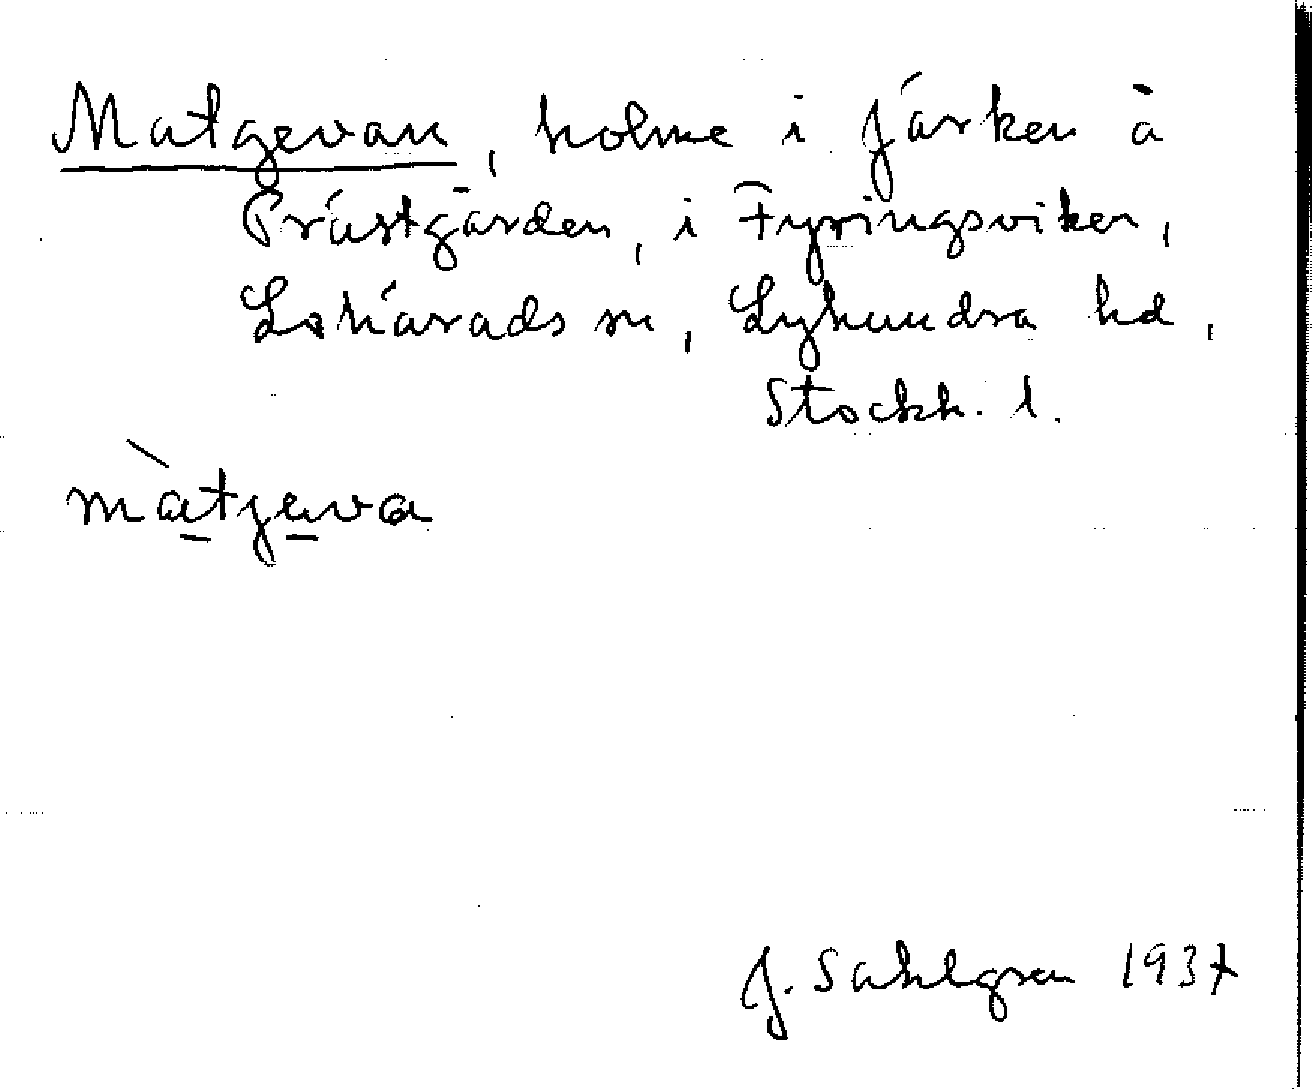 Matgevan, holme i Järken å
Prästgården, i Fyringsviken,
Lohärads sn, Lyhundra hd,
Stockh. l.
màtjeva
J. Sahlgren 1937